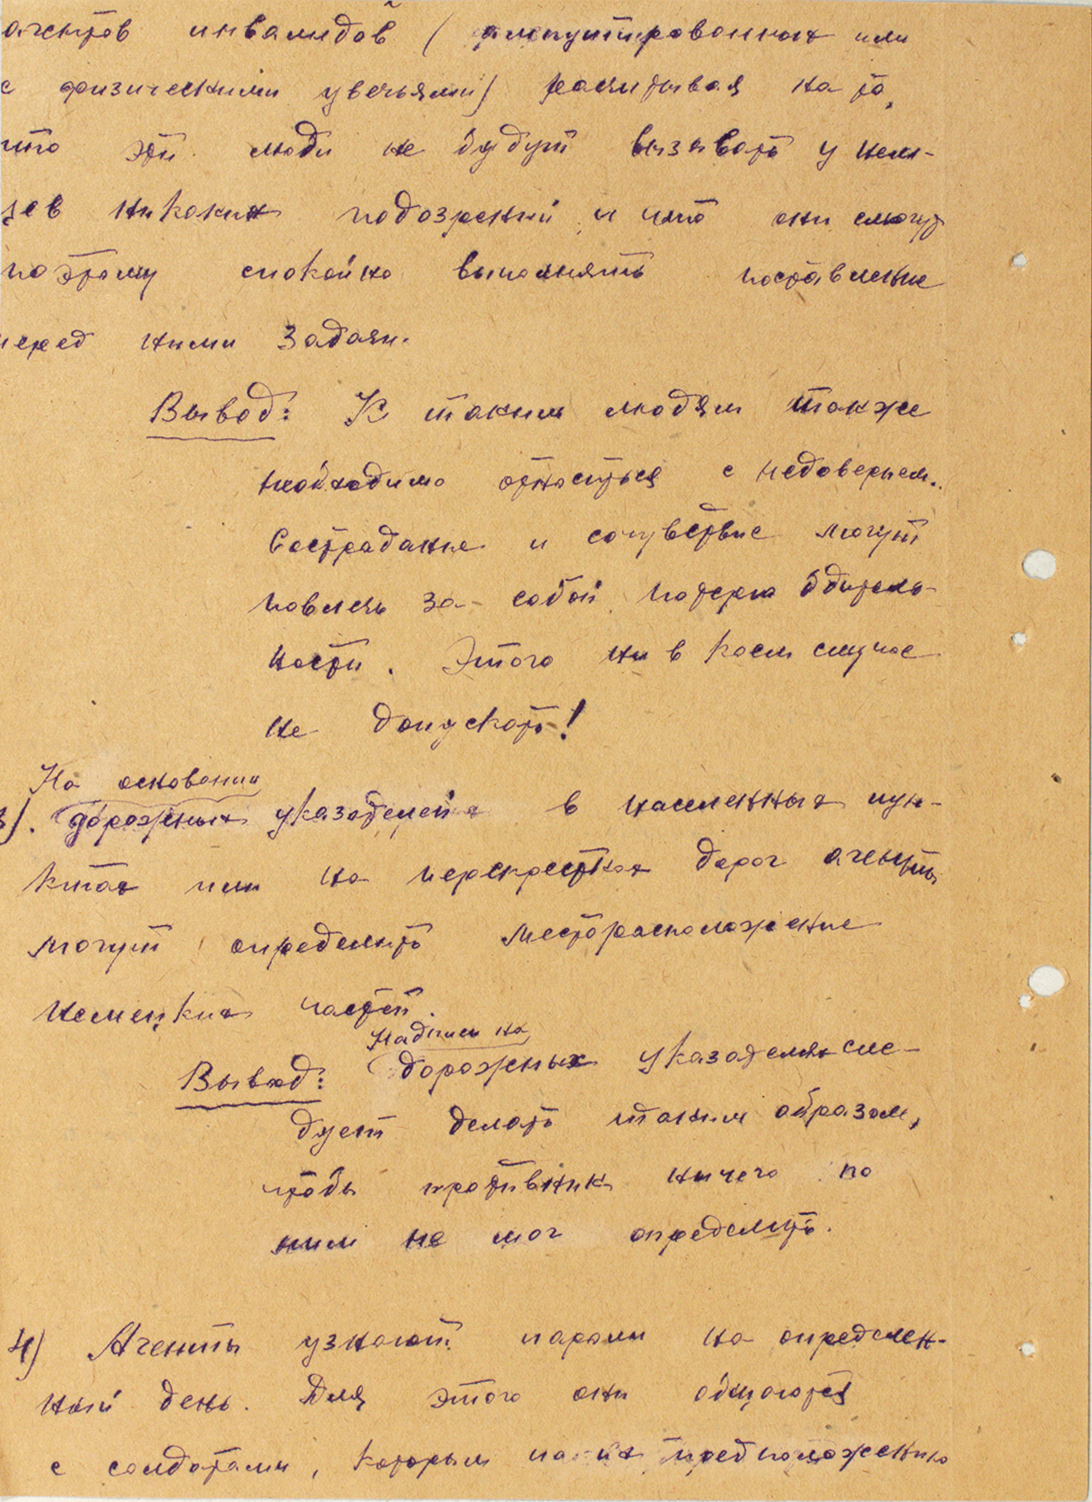 агентов инвалидов (ампутированных или
с физическими увечьями) расчитывая на то,
что эти люди не будут вызывать у нем-
цев никаких подозрений и что они смогут
поэтому спокойно выполнять поставленые
перед ними задачи.
Вывод: К таким людям также
необходимо относиться с недоверьем.
Сострадание и сочувствие могут
повлечь за собой потерю бдитель-
ности. Этого ни в коем случае
не допускать!
На основании
3). дорожных указателей в населенных пун-
ктах или на перекрестках дорог агенты
могут определить месторасположение
немецких частей.
Надписи на
Вывод: дорожных указателях сле-
дует делать таким образом,
чтобы противник ничего по
ним не мог определить.
4) Агенты узнают пароли на определен-
ный день. Для этого они общаются
с солдатами, которым по их предположению